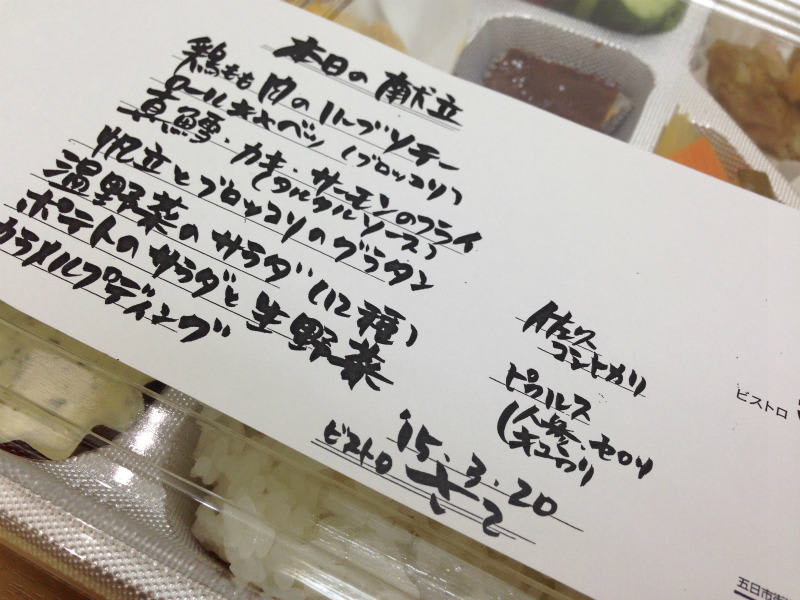 本日の献立
鶏もも肉のハーブソテー
ロールキャベツ (ブロッコリ)
真鱈・カキ・サーモンのフライ
(タルタルソース)
帆立とブロッコリのグラタン
温野菜のサラダ (12種)
ポテトのサラダと生野菜
カラメルプディング
佐久
コシヒカリ
ピクルス
(人参、セロリ
キュウリ)
'15.3.20
ビストロ さて
ビストロ
五日市街